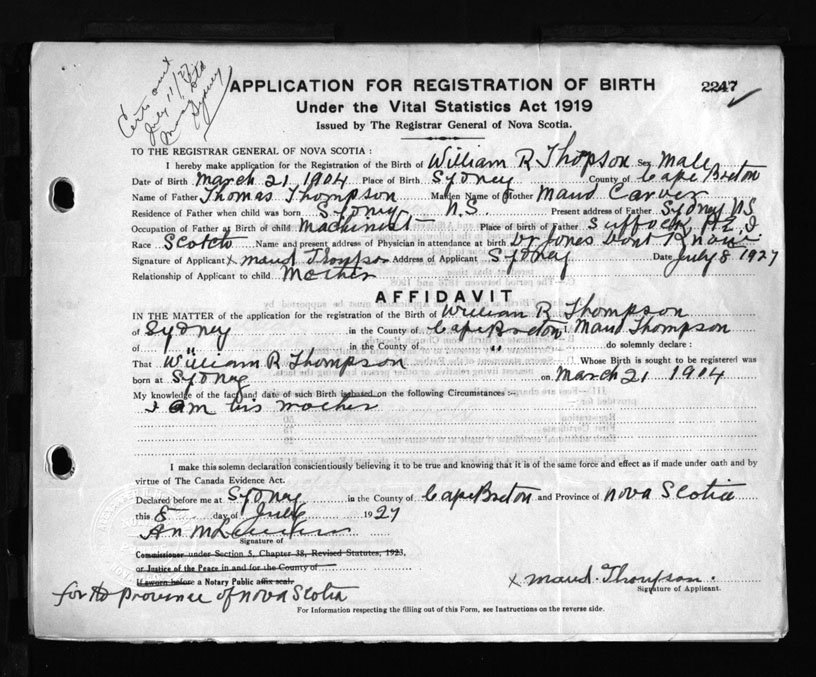 Certs out
July 11/27
Mrs
Sydney
APPLICATION FOR REGISTRATION OF BIRTH
2247
Under the Vital Statistics Act 1919
Issued by The Registrar General of Nova Scotia.
TO THE REGISTRAR GENERAL OF NOVA SCOTIA:
I hereby make application for the Registration of the Birth of William R Thopson Sex Male
Date of Birth March 21, 1904 Place of Birth Sydney County of Cape Breton
Name of Father Thomas Thompson Maiden Name of Mother Maud Carver
Residence of Father when child was born Sydney N.S. Present address of Father Sydney NS
Occupation of Father at Birth of child Machinist Place of birth of Father Suffock P.E.I
Race Scotch Name and present address of Physician in attendance at birth Dr Jones Dont Know
Signature of Applicant x Maud Thompson Address of Applicant Sydney Date July 8 1927
Relationship of Applicant to child Mother
AFFIDAVIT
IN THE MATTER of the application for the registration of the Birth of William R Thompson
of Sydney in the County of Cape Breton I, Maud Thompson
of " in the County of " do solemnly declare:
That William R Thompson Whose Birth is sought to be registered was
born at Sydney on March 21 1904
My knowledge of the fact and date of such Birth is based on the following Circumstances:-
I am his mother
I make this solemn declaration conscientiously believing it to be true and knowing that it is of the same force and effect as if made under oath and by
virtue of The Canada Evidence Act.
Declared before me at Sydney in the County of Cape Breton and Province of Nova Scotia
this 8 day of July 1927
Signature of
Commissioner under Section 5, Chapter 38, Revised Statutes, 1923,
or Justice of the Peace in and for the County of
If sworn before a Notary Public affix seal.
for the Province of Nova Scotia
x Maud Thompson.
Signature of Applicant.
For Information respecting the filling out of this Form, see Instructions on the reverse side.